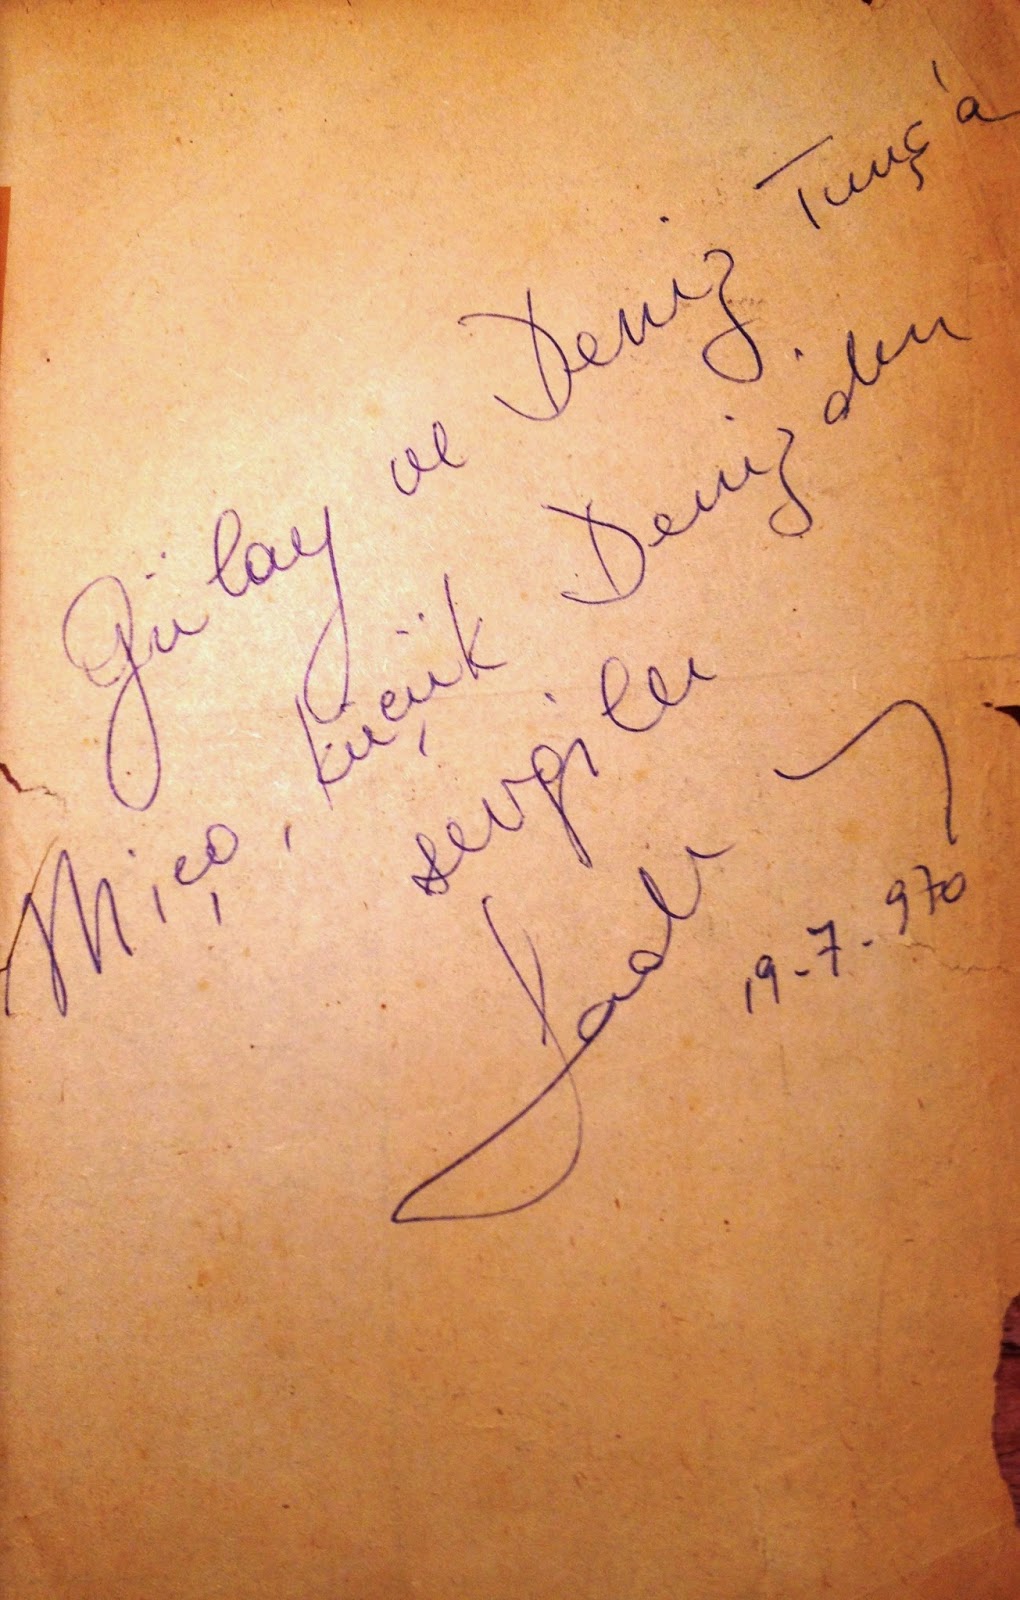 Gülay ve Deniz Tunç'a
Miço, küçük Deniz'den
sevgiler
19-7-970